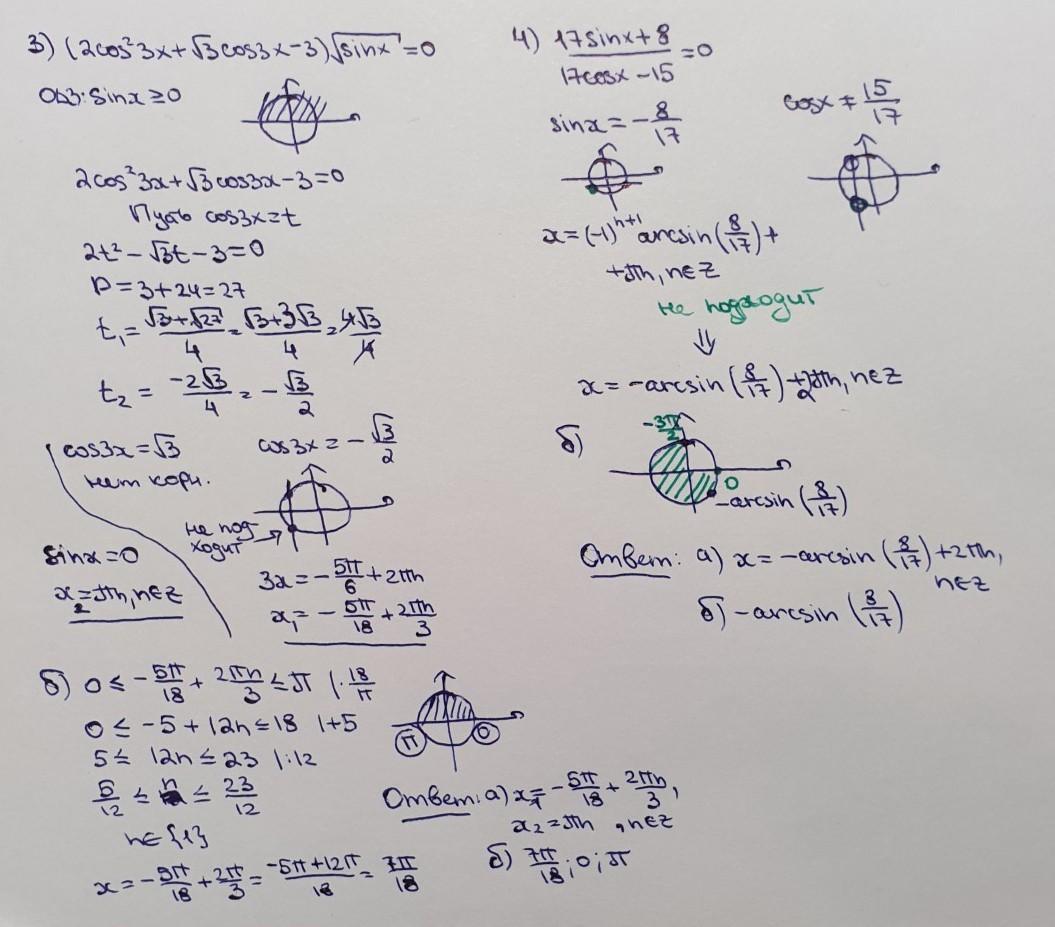 3) (2cos²3x+√3cos3x-3)√sinx=0
ОДЗ: sinx≥0
2cos²3x+√3cos3x-3=0
Пусть cos3x=t
2t²-√3t-3=0
D=3+24=27
t₁=(√3+√27)/4=(√3+3√3)/4=4√3/4
t₂=-2√3/4=-√3/2
cos3x=√3
нет корн.
cos3x=-√3/2
не под-
ходит
3x=-5π/6+2πn
x₁=-5π/18+2πn/3
sinx=0
x₂=πn, n∈Z
б) 0≤-5π/18+2πn/3≤π |·18/π
0≤-5+12n≤18 |+5
5≤12n≤23 |:12
5/12≤n≤23/12
n∈{1}
x=-5π/18+2π/3=(-5π+12π)/18=7π/18
π 0
Ответ: а) x₁=-5π/18+2πn/3,
x₂=πn, n∈Z
б) 7π/18; 0; π
4) (17sinx+8)/(17cosx-15)=0
sinx=-8/17
cosx≠15/17
x=(-1)ⁿ⁺¹arcsin(8/17)+
+πn, n∈Z
не подходит
⇓
x=-arcsin(8/17)+2πn, n∈Z
б)
-3π/2
0
-arcsin(8/17)
Ответ: а) x=-arcsin(8/17)+2πn,
n∈Z
б) -arcsin(8/17)